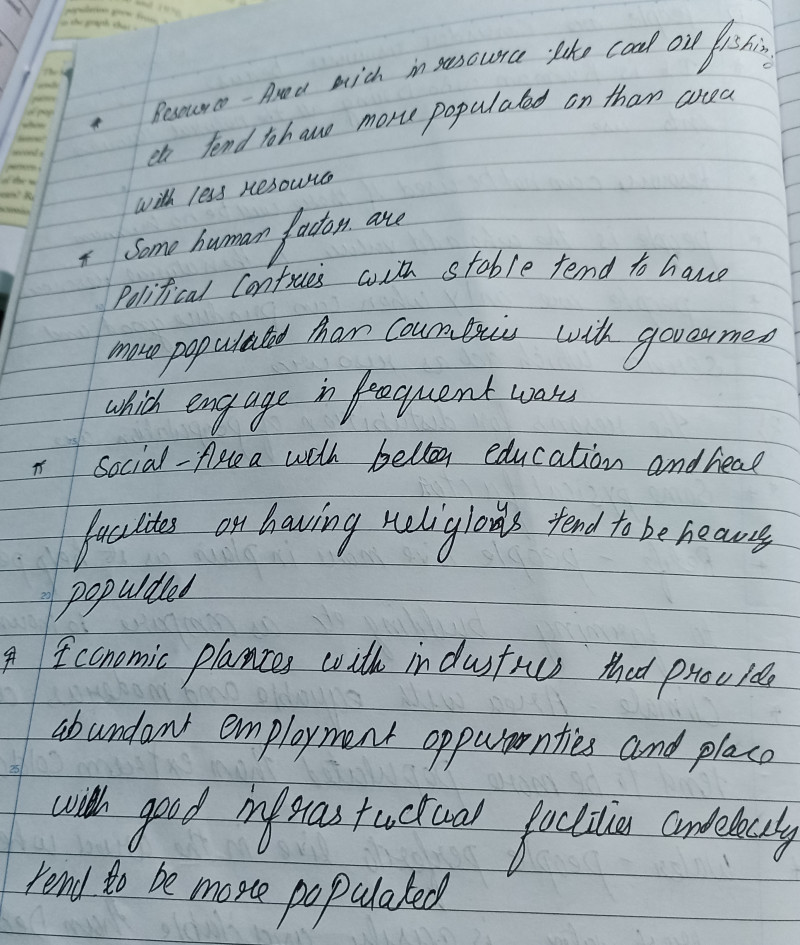 * Resource - Area rich in resource like coal oil fishing
etc tend to have more populated on than area
with less resource
* Some human factors are
Political Contries with stable tend to have
more populated than Countries with govermes
which engage in frequent wars
* Social - Area with better education and heal
facilites or having religions tend to be heavily
populated
* Economic places with industries that provide
abundant employment and place
with good infrastuctual facilities
tend to be more populated